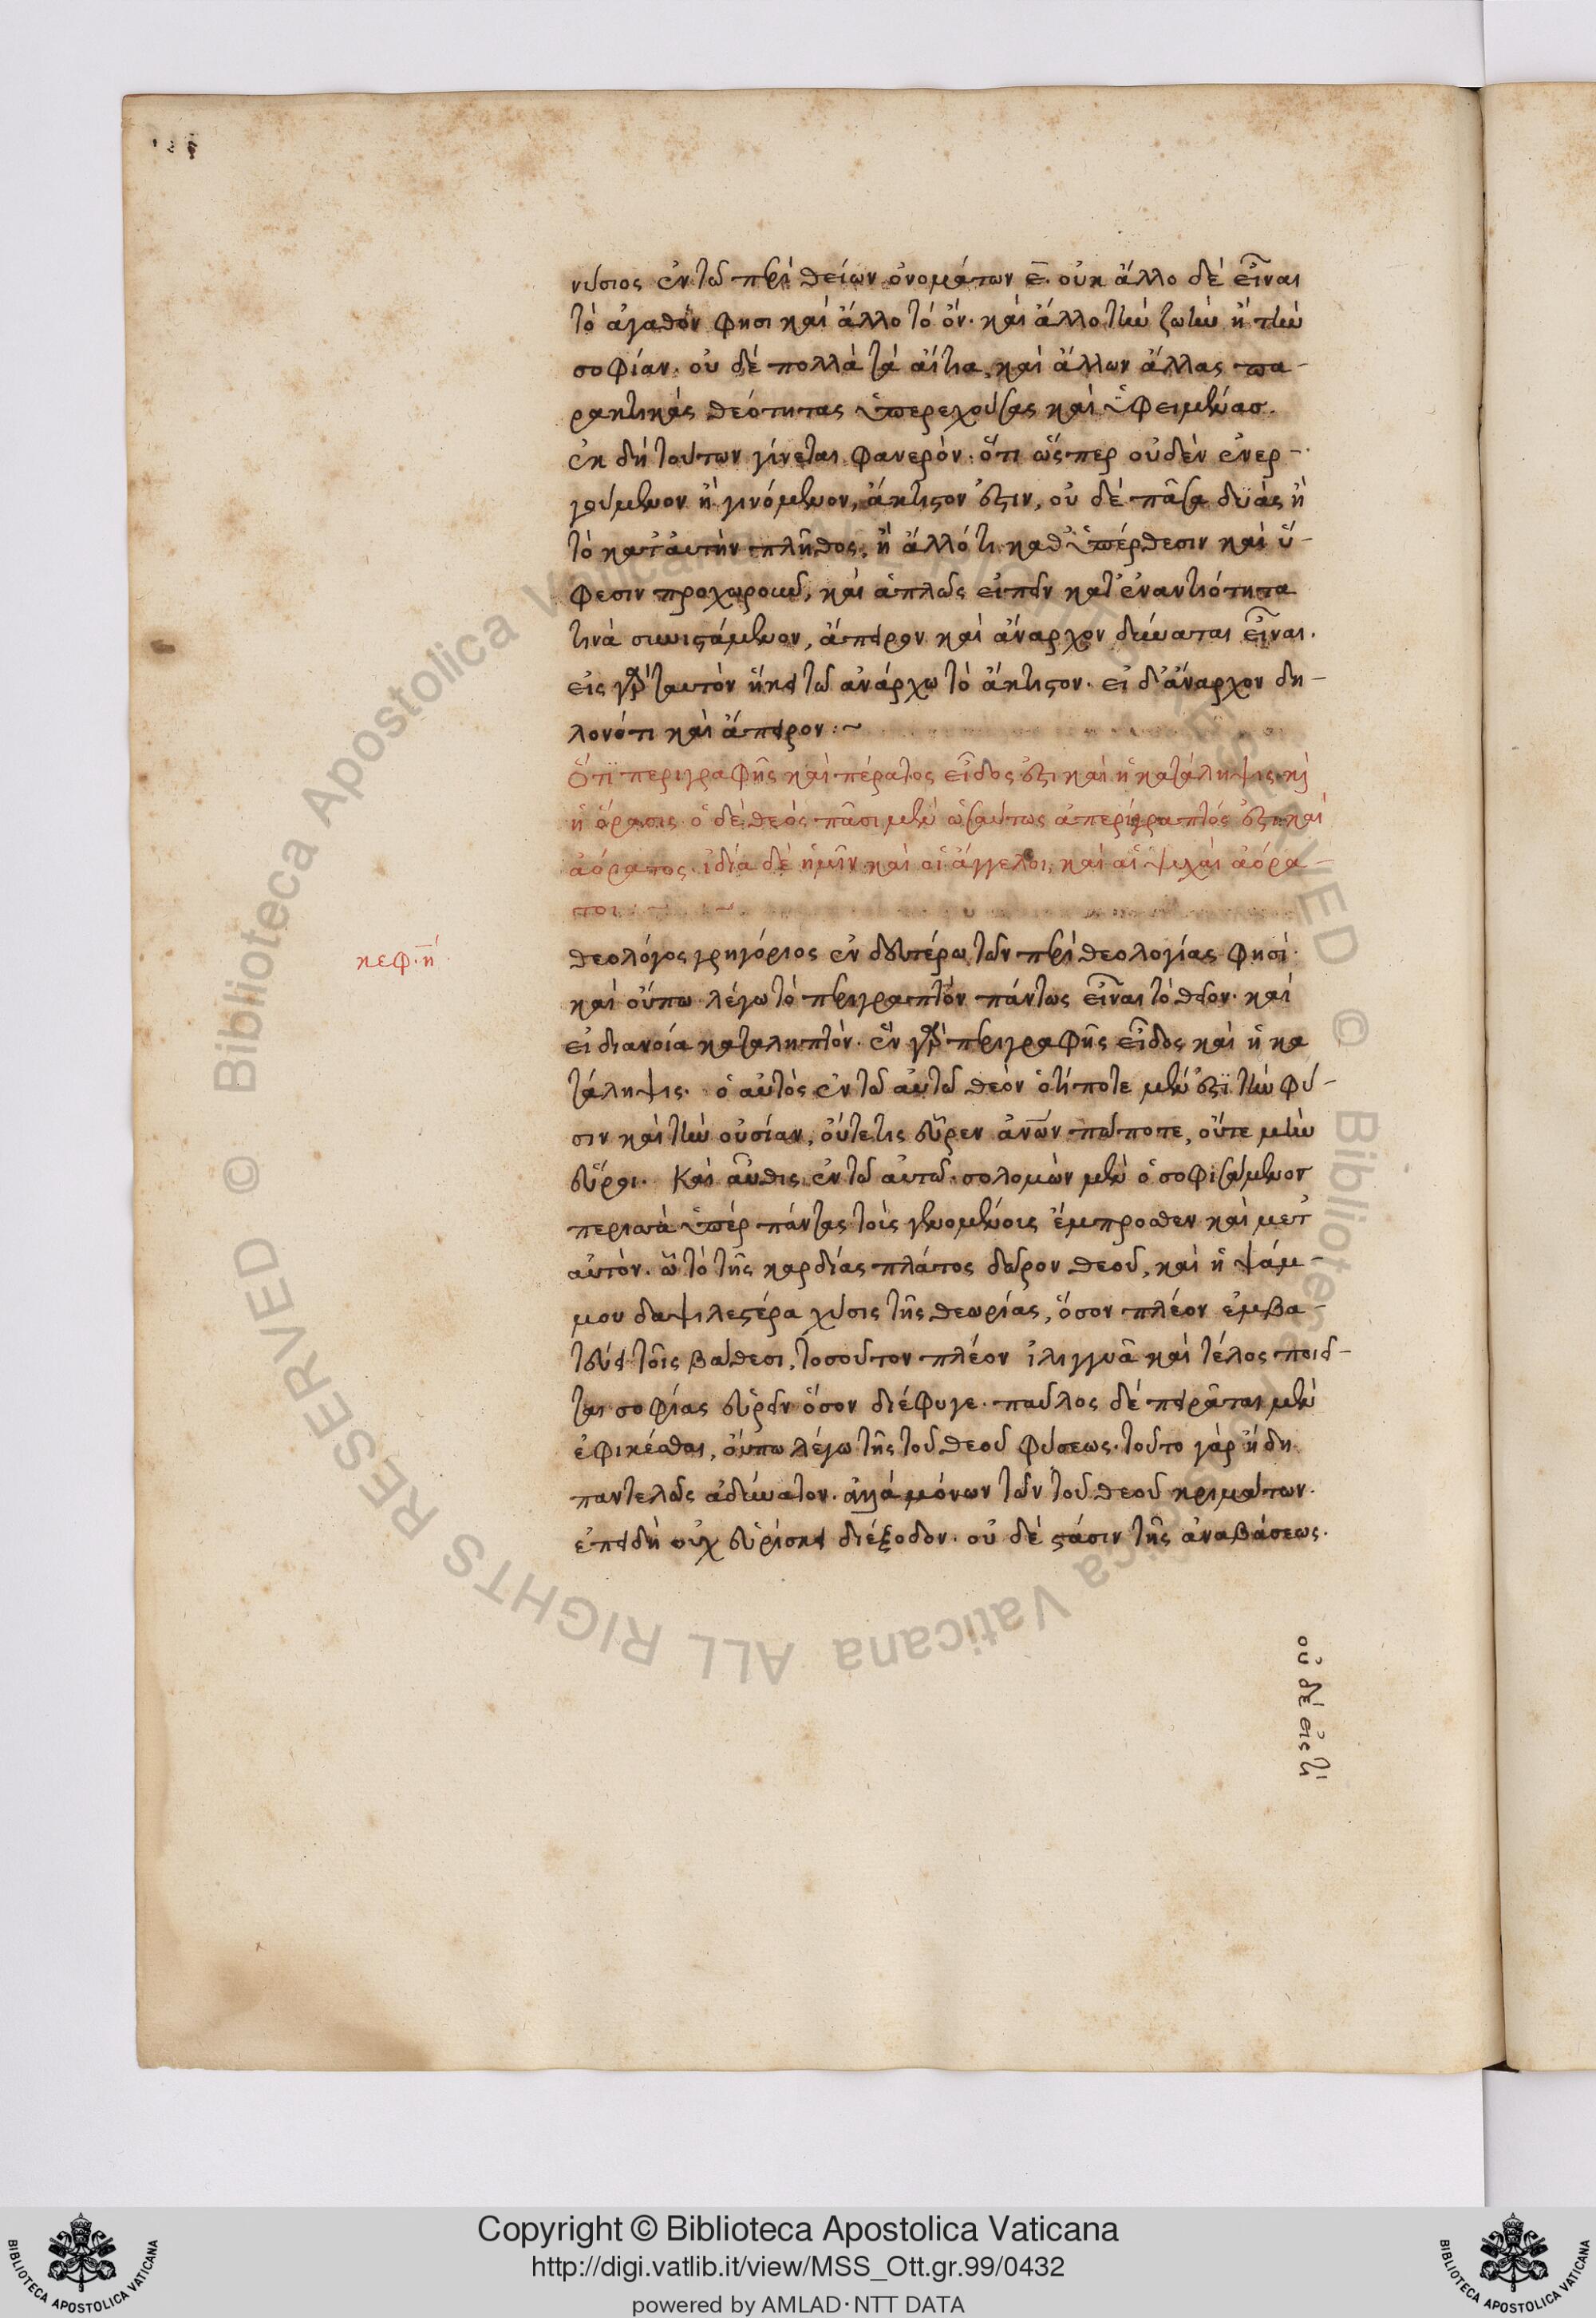 νύσιος ἐν τῶ περὶ θείων ὀνομάτων ε̅. οὐκ ἄλλο δὲ εἶναι
τὸ ἀγαθόν φησι καὶ ἄλλο τὸ ὄν. καὶ ἄλλο τὴν ζωὴν ἢ τὴν
σοφίαν. οὐ δὲ πολλὰ τὰ αἴτια, καὶ ἄλλων ἄλλας πα-
ρακτικὰς θεότητας ὑπερεχούσας καὶ ὑφειμένασ.
ἐκ δὴ τούτων γίνεται φανερόν. ὅτι ὥσπερ οὐδὲν ἐνερ-
γούμενον ἢ γινόμενον, ἄκτιστον ἐστιν, οὐ δὲ πᾶσα δυὰς ἢ
τὸ κατ' αὐτὴν πλῆθος, ἢ ἀλλό τι καθ' ὑπέρθεσιν καὶ ὕ-
φεσιν προχωροῦν, καὶ ἁπλῶς εἰπεῖν κατ' ἐναντιότητα
τινὰ συνιστάμενον, ἄπειρον καὶ ἄναρχον δύναται εἶναι.
εἰς γὰρ ταυτὸν ἥκει τῶ ἀνάρχω τὸ ἄκτιστον. εἰ δ' ἄναρχον δη-
λονότι καὶ ἄπειρον :~
Ὅτι περιγραφῆς καὶ πέρατος εἶδος ἐστι καὶ ἡ κατάληψις κὶ
ἡ ὅρασις ὁ δὲ θεὸς πᾶσι μὲν ὡσαύτως ἀπερίγραπτός ἐστι καὶ
ἀόρατος. ἰδία δὲ ἡμῖν καὶ οἱ ἄγγελοι, καὶ αἱ ψυχαὶ ἀόρα-
τοι
κεφ. η'
θεολόγος γρηγόριος ἐν δευτέρω τῶν περὶ θεολογίας φησί.
καὶ οὔπω λέγω τὸ περιγραπτὸν πάντως εἶναι τὸ θεῖον. καὶ
εἰ διανοία καταληπτόν. ἓν γὰρ περιγραφῆς εἶδος καὶ ἡ κα
τάληψις. ὁ αὐτὸς ἐν τῶ αὐτῶ θεὸν ὁτί ποτε μέν ἐστι τὴν φύ-
σιν καὶ τὴν οὐσίαν, οὔτε τις εὗρεν ἀνων πώποτε, οὔτε μὴν
εὕροι. Καὶ αὖθις ἐν τῶ αὐτῶ. σολομὼν μὲν ὁ σοφισάμενοσ
περιττὰ ὑπὲρ πάντας τοὶς γενομένοις ἔμπροσθεν καὶ μετ'
αὐτόν. ὧ τὸ τῆς καρδίας πλάτος δῶρον θεοῦ, καὶ ἡ ψάμ-
μου δαψιλεστέρα χύσις τῆς θεωρίας, ὅσον πλέον ἐμβα-
τεύει τοῖς βάθεσι, τοσοῦτον πλέον ἰλιγγιᾶ καὶ τέλος ποιεῖ-
ται σοφίας εὑρεῖν ὅσον διέφυγε. παῦλος δὲ πειρᾶται μὲν
ἐφικέσθαι, οὔπω λέγω τῆς τοῦ θεοῦ φύσεως. τοῦτο γὰρ ἤδη
παντελῶς ἀδύνατον. ἀλλὰ μόνων τῶν τοῦ θεοῦ κριμάτων.
ἐπειδὴ οὐχ εὑρίσκει διέξοδον. οὐ δὲ στάσιν τῆς ἀναβάσεως.
οὐ δὲ εἴς τι
Copyright © Biblioteca Apostolica Vaticana
http://digi.vatlib.it/view/MSS_Ott.gr.99/0432
powered by AMLAD·NTT DATA
BIBLIOTECA APOSTOLICA VATICANA
BIBLIOTECA APOSTOLICA VATICANA
© Biblioteca Apostolica Vaticana ALL RIGHTS RESERVED
© Biblioteca Apostolica Vaticana ALL RIGHTS RESERVED